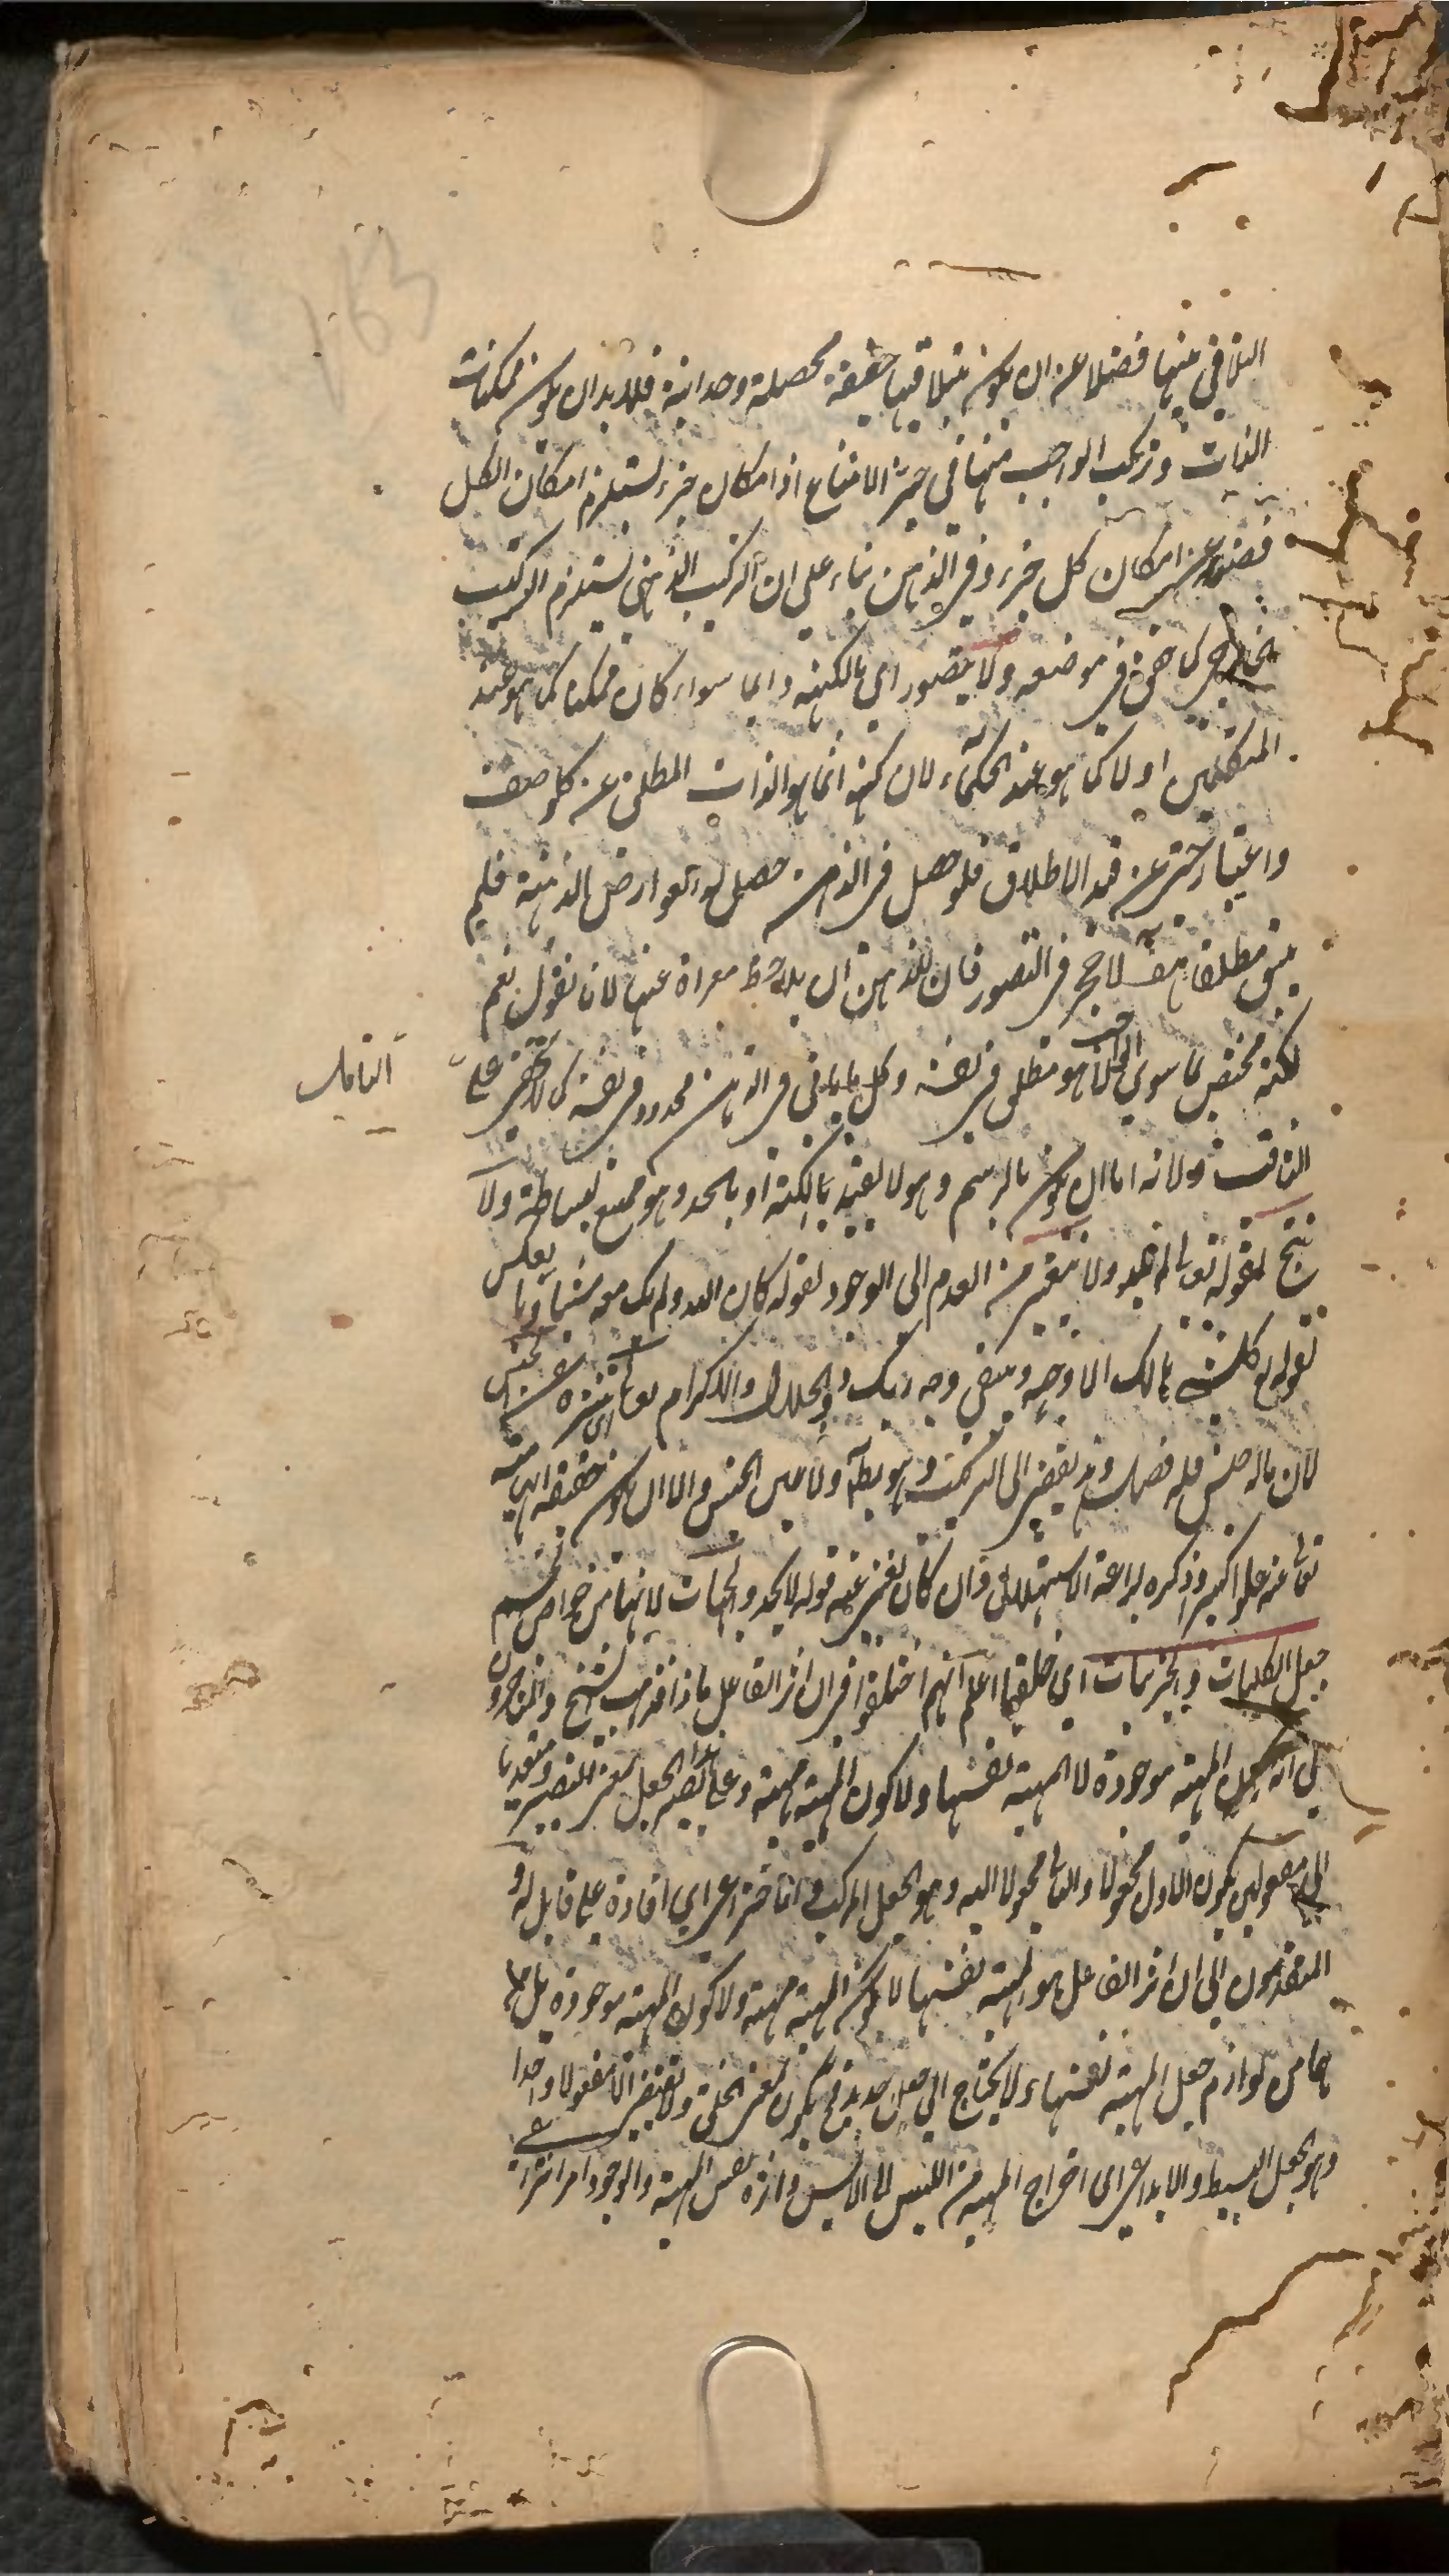 التلاقي بينها فضلا عن ان يكون بتلاقيها حقيقة محصلة وحدانية فلابد ان يكون ممكنات
الذات وتركب الواجب منها في حيز الامتناع اذ امكان جزء يستلزم امكان الكل
فضلا عن امكان كل جزء وفي الذهن بناء على ان التركيب الذهني يستلزم التركيب
الخارجي كما حقق في موضعه ولا يتصور اي بالكنه دائما سواء كان ممكنا كما هو عند
المتكلمين او لا كما هو عند الحكماء لان كنهه انما هو الذات المطلق عن كل وصف
واعتبار حتى عن قيد الاطلاق فلو حصل في الذهن حصل له العوارض الذهنية فلم
يبق مطلقا هف لا حجر في التصور فان للذهن ان يلاحظ معراة عنها لانا نقول نعم
لكنه مختص بما سوى الحق لانه هو مطلق في نفسه وكل ما ياتي في الذهن محدود في نفسه كما لا يخفى على
التامل
الثاقب ولانه اما ان يكون بالرسم وهو لا يفيد بالكنه او بالحد وهو ممتنع لبساطته ولا
ينتج لقوله تعالى لم يلد ولا يتغير من العدم الى الوجود لقوله كان الله ولم يك معه شيء او بالعكس
لقوله تعالى كل شيء هالك الا وجهه ويبقى وجه ربك ذو الجلال والاكرام تعالى اي تنزه عن الجنس
لان ماله جنس فله فصل وهو يفضي الى التركيب وهو بط ولا من الجنس والا ان يكون حقيقة الهية
تعالى عنه علوا كبيرا وذكره لبراعة الاستهلال وان كان يغني عنه قوله لا يحد والجهات لانها من خواص الجسم
جعل الكليات والجزئيات اي خلقهما اعلم انهم اختلفوا في ان اثر الفاعل ماذا فذهب الشيخ والمتاخرون
الى انه جعل المهية موجودة لا المهية نفسها ولا كون المهية مهية وعلى هذا يصير الجعل بمعنى التصيير ومتعديا
الى مفعولين يكون الاول مجعولا والثاني مجعولا اليه وهو الجعل المركب والاختراعي اي افادة على قابل له و
المتقدمون الى ان اثر الفاعل هو المهية نفسها لا كون المهية مهية ولا كون المهية موجودة بل هما
هما من لوازم جعل المهية نفسها ولا يحتاج الى جعل جديد فح يكون بمعنى الخلق ولا يقتضي الا مفعولا واحدا
وهو الجعل البسيط والابداعي اي اخراج المهية من الليس الى الايس واثره نفس المهية والوجود امر انتزاعي